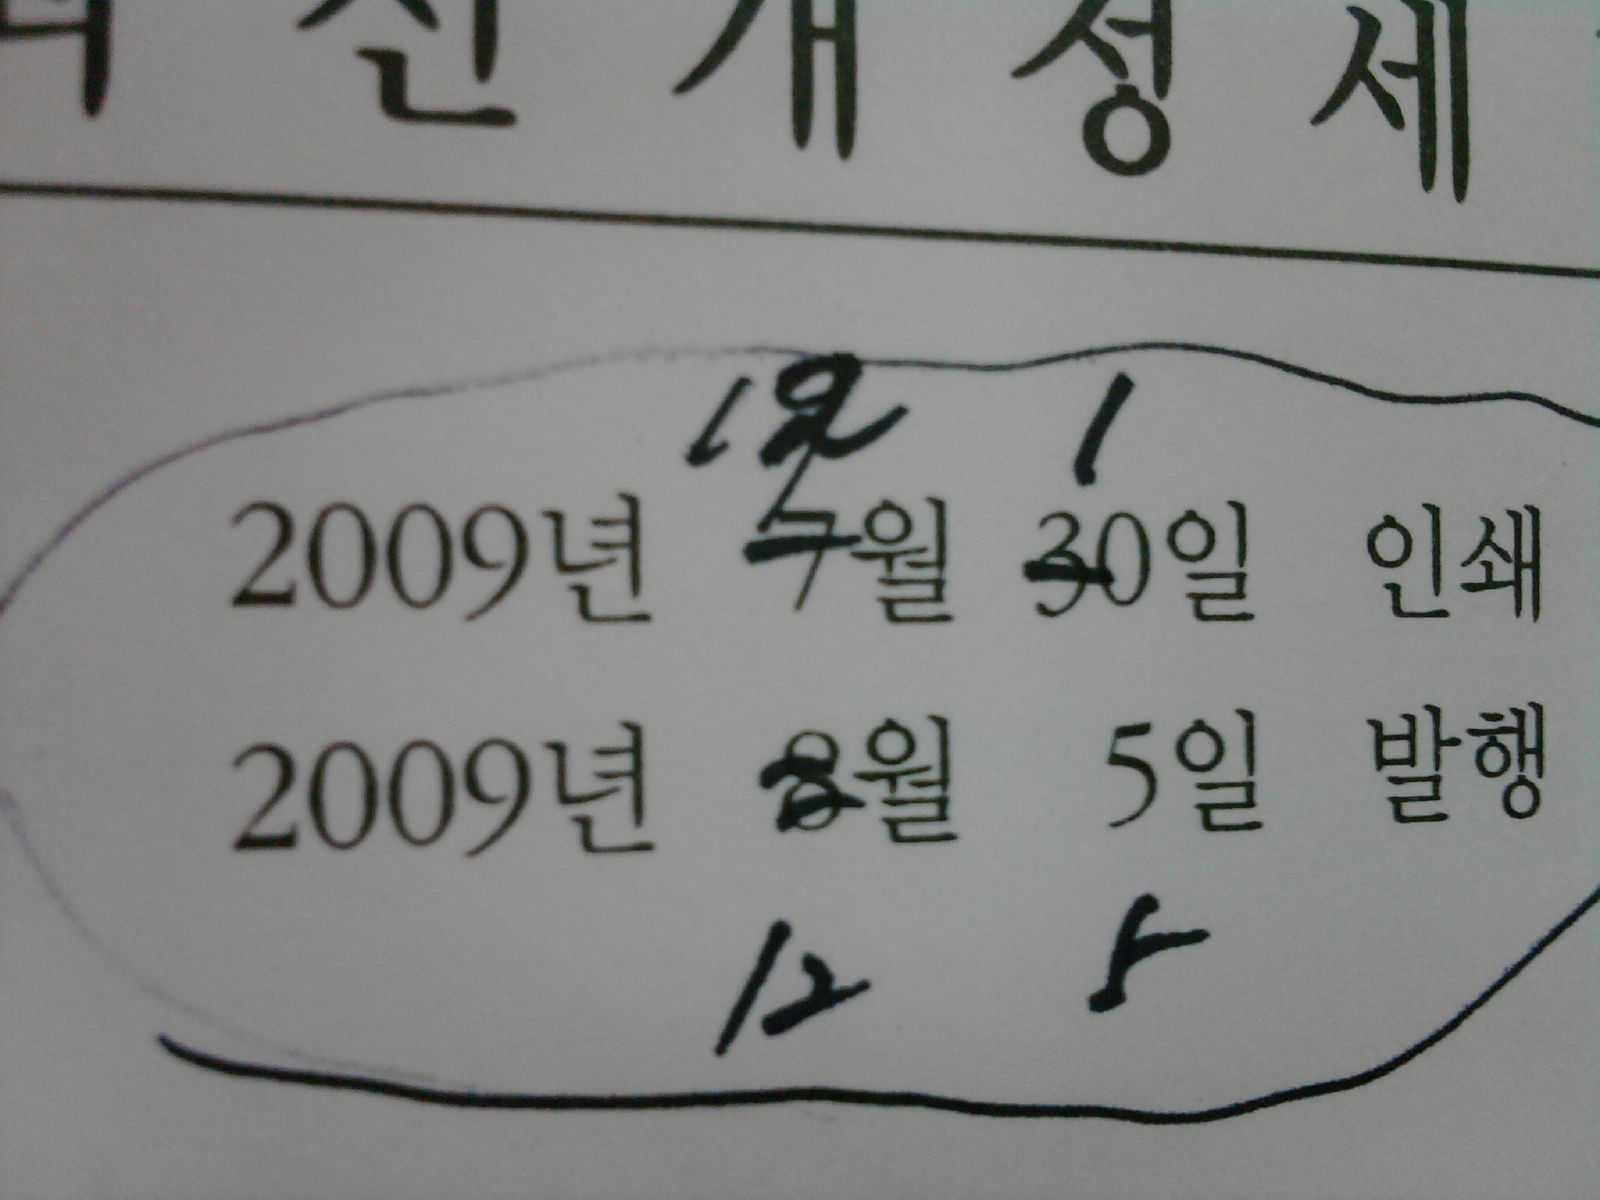 신 개 성 세
12 1
2009년 7월 30일 인쇄
2009년 8월 5일 발행
12 5